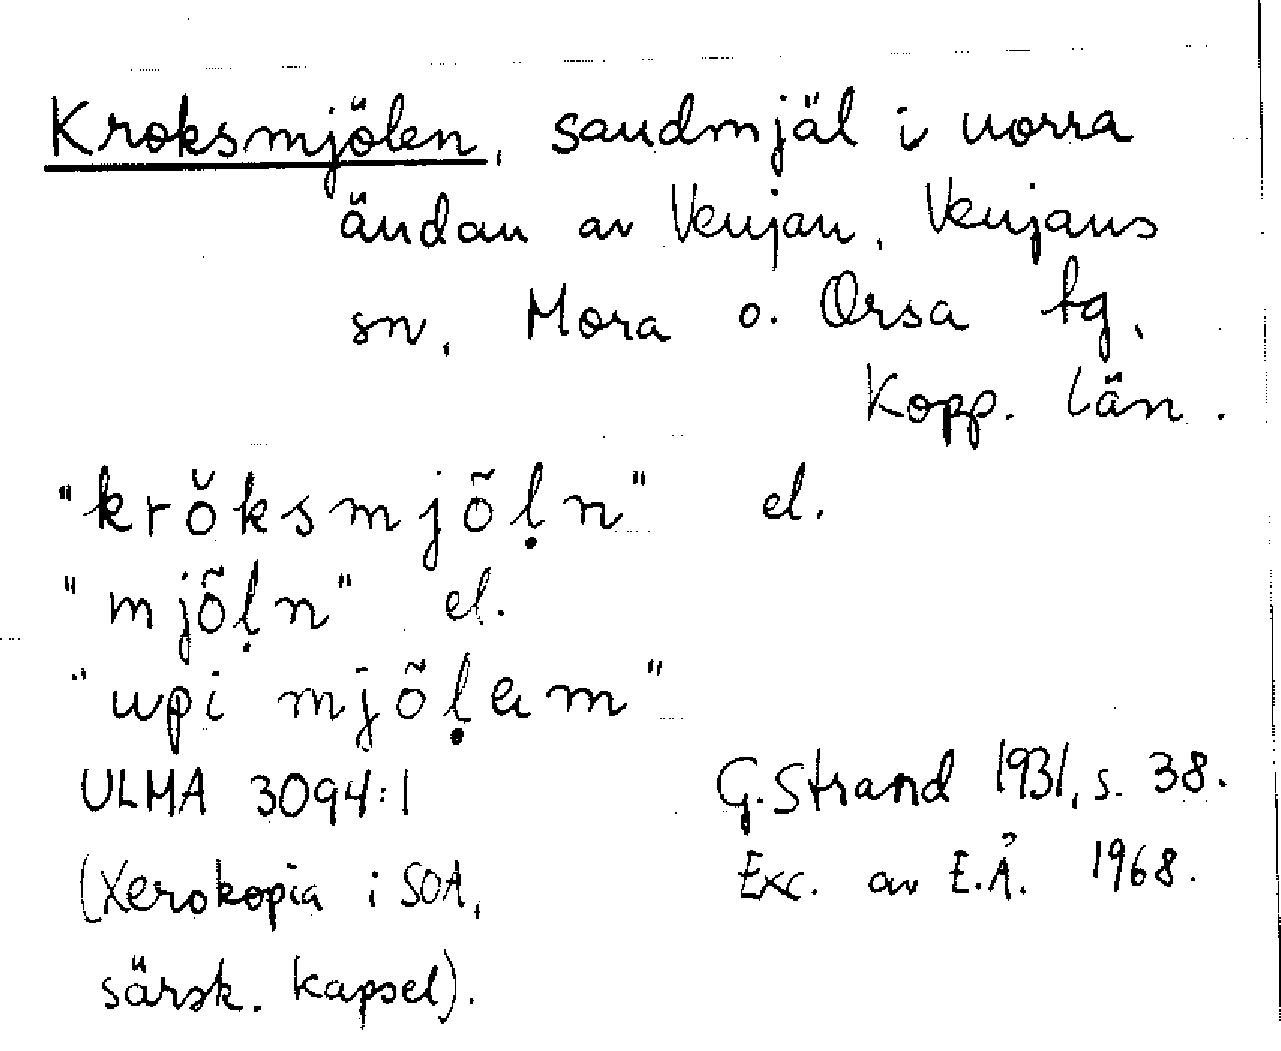 Kroksmjölen, sandmjäl i norra
ändan av Venjan, Venjans
sn, Mora o. Orsa tg,
Kopp. län.
"krŏksmjõḷn" el.
"mjõḷn" el.
"upi mjõḷem"
ULMA 3094:1 G. Strand 1931, s. 38.
(Xerokopia i SOA, Exc. av E.Å. 1968.
särsk. kapsel).